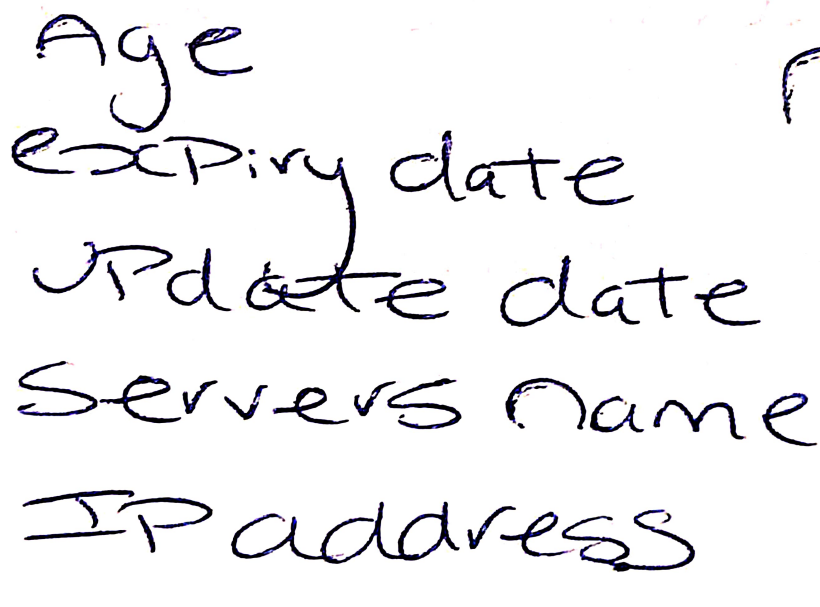 Age
expiry date
update date
servers name
IP address